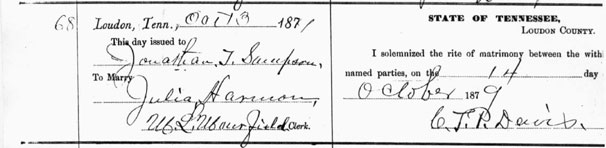 68.
Loudon, Tenn., Oct 13 1879
This day issued to
Jonathan T. Sampson,
To Marry
Julia Harmon,
Clerk.
STATE OF TENNESSEE,
LOUDON COUNTY.
I solemnized the rite of matrimony between the with
named parties, on the 14 day
October 1879
C. T. P. Davis.